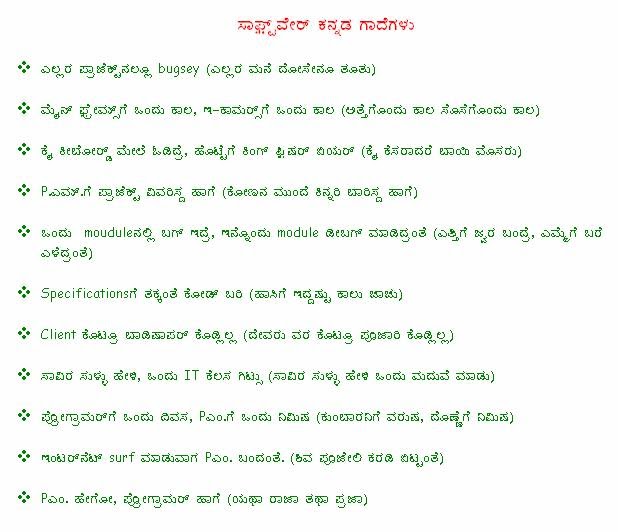 ಸಾಫ್ಟ್‌ವೇರ್ ಕನ್ನಡ ಗಾದೆಗಳು
❖ ಎಲ್ಲರ ಪ್ರಾಜೆಕ್ಟ್‌ನಲ್ಲೂ bugsey (ಎಲ್ಲರ ಮನೆ ದೋಸೇನೂ ತೂತು)
❖ ಮೈನ್ ಫ್ರೇಮ್ಸ್‌ಗೆ ಒಂದು ಕಾಲ, ಇ-ಕಾಮರ್ಸ್‌ಗೆ ಒಂದು ಕಾಲ (ಅತ್ತೆಗೊಂದು ಕಾಲ ಸೊಸೆಗೊಂದು ಕಾಲ)
❖ ಕೈ ಕೀಬೋರ್ಡ್ ಮೇಲೆ ಓಡಿದ್ರೆ, ಹೊಟ್ಟೆಗೆ ಕಿಂಗ್ ಫಿಷರ್ ಬಿಯರ್ (ಕೈ ಕೆಸರಾದರೆ ಬಾಯಿ ಮೊಸರು)
❖ P.ಎಮ್.ಗೆ ಪ್ರಾಜೆಕ್ಟ್ ವಿವರಿಸ್ದ ಹಾಗೆ (ಕೋಣನ ಮುಂದೆ ಕಿನ್ನರಿ ಬಾರಿಸ್ದ ಹಾಗೆ)
❖ ಒಂದು mouduleನಲ್ಲಿ ಬಗ್ ಇದ್ರೆ, ಇನ್ನೊಂದು module ಡೀಬಗ್ ಮಾಡಿದ್ರಂತೆ (ಎತ್ತಿಗೆ ಜ್ವರ ಬಂದ್ರೆ, ಎಮ್ಮೆಗೆ ಬರೆ
ಎಳೆದ್ರಂತೆ)
❖ Specificationsಗೆ ತಕ್ಕಂತೆ ಕೋಡ್ ಬರಿ (ಹಾಸಿಗೆ ಇದ್ದಷ್ಟು ಕಾಲು ಚಾಚು)
❖ Client ಕೊಟ್ರೂ ಬಾಡಿಷಾಪರ್ ಕೊಡ್ಲಿಲ್ಲ (ದೇವರು ವರ ಕೊಟ್ರೂ ಪೂಜಾರಿ ಕೊಡ್ಲಿಲ್ಲ)
❖ ಸಾವಿರ ಸುಳ್ಳು ಹೇಳಿ, ಒಂದು IT ಕೆಲಸ ಗಿಟ್ಸು (ಸಾವಿರ ಸುಳ್ಳು ಹೇಳಿ ಒಂದು ಮದುವೆ ಮಾಡು)
❖ ಪ್ರೋಗ್ರಾಮರ್‌ಗೆ ಒಂದು ದಿವಸ, Pಎಂ.ಗೆ ಒಂದು ನಿಮಿಷ (ಕುಂಬಾರನಿಗೆ ವರುಷ, ದೊಣ್ಣೆಗೆ ನಿಮಿಷ)
❖ ಇಂಟರ್‌ನೆಟ್ surf ಮಾಡುವಾಗ Pಎಂ. ಬಂದಂತೆ. (ಶಿವ ಪೂಜೇಲಿ ಕರಡಿ ಬಿಟ್ಟಂತೆ)
❖ Pಎಂ. ಹೇಗೋ, ಪ್ರೋಗ್ರಾಮರ್ ಹಾಗೆ (ಯಥಾ ರಾಜಾ ತಥಾ ಪ್ರಜಾ)